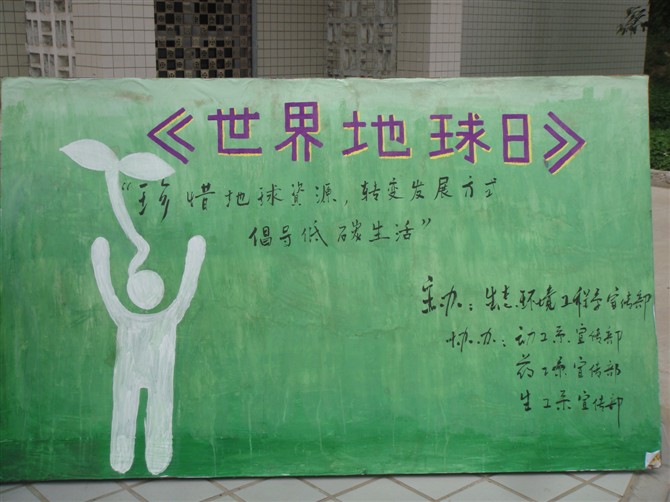 《世界地球日》
“珍惜地球資源，转变发展方式
倡导低碳生活”
主办：生态环境工程学宣传部
协办：动工系宣传部
药工系宣传部
生工系宣传部